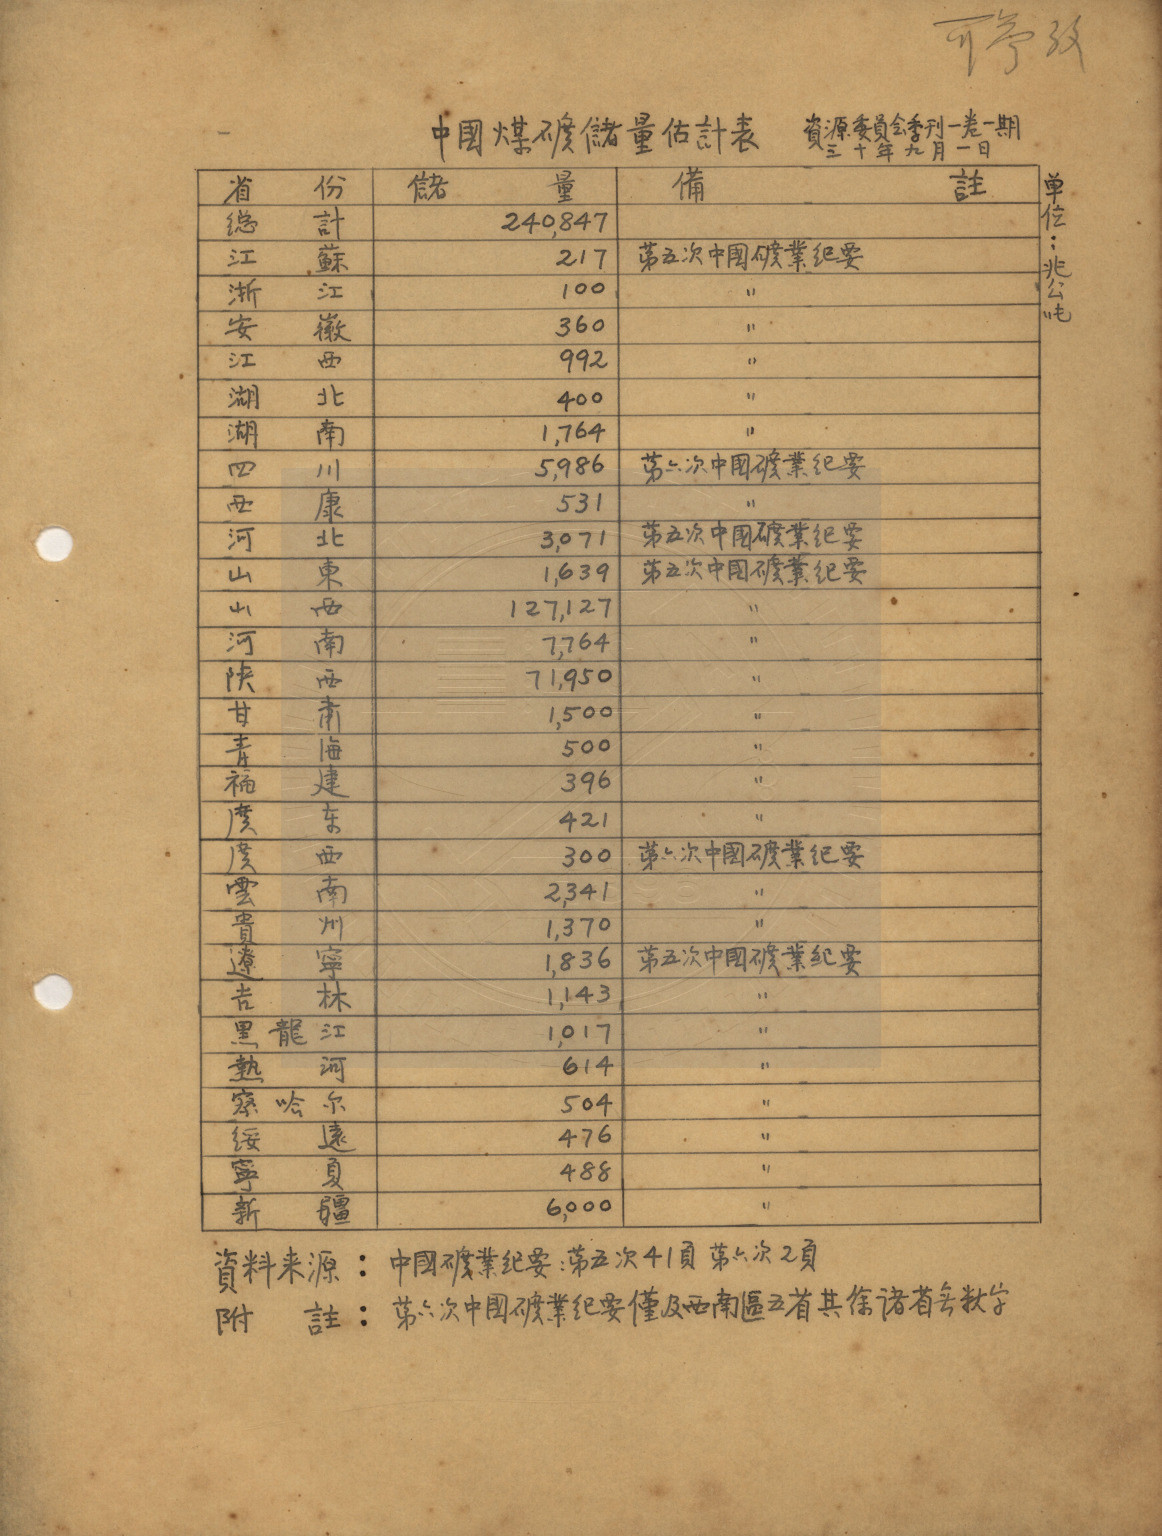 可參考
中國煤礦儲量估計表 資源委員会季刊一卷一期
三十年九月一日
单位：兆公吨
省份 儲量 備註
總計 240,847
江蘇 217 第五次中國礦業紀要
浙江 100 〃
安徽 360 〃
江西 992 〃
湖北 400 〃
湖南 1,764 〃
四川 5,986 第六次中國礦業紀要
西康 531 〃
河北 3,071 第五次中國礦業紀要
山東 1,639 第五次中國礦業紀要
山西 127,127 〃
河南 7,764 〃
陝西 71,950 〃
甘肅 1,500 〃
青海 500 〃
福建 396 〃
廣东 421 〃
廣西 300 第六次中國礦業紀要
雲南 2,341 〃
貴州 1,370 〃
遼寧 1,836 第五次中國礦業紀要
吉林 1,143 〃
黑龍江 1,017 〃
熱河 614 〃
察哈尔 504 〃
綏遠 476 〃
寧夏 488 〃
新疆 6,000 〃
資料来源：中國礦業紀要:第五次41頁 第六次2頁
附註：第六次中國礦業紀要僅及西南區五省其餘諸省無数字